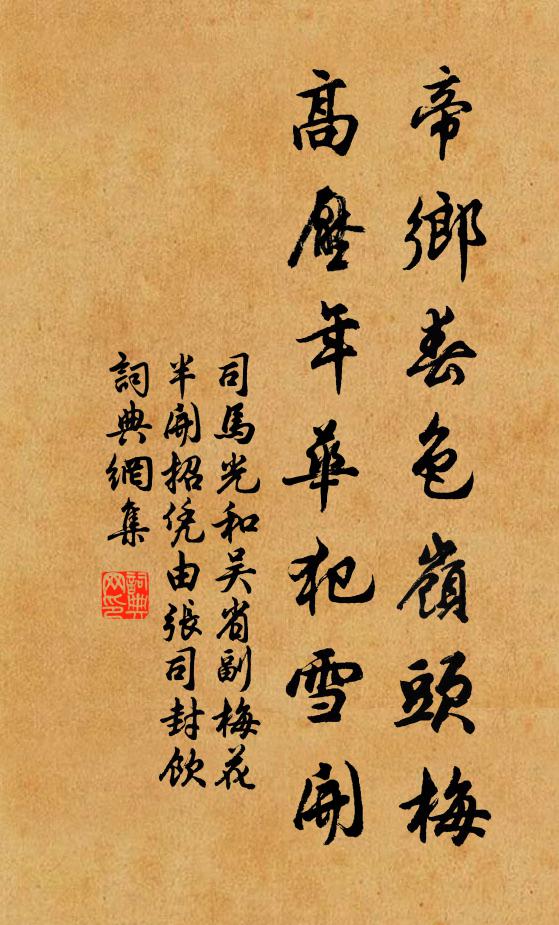 帝鄉春色嶺頭梅
高壓年華犯雪開
司馬光和吴省副梅花
半開招凭由張司封飲
詞典網集
詞典網印